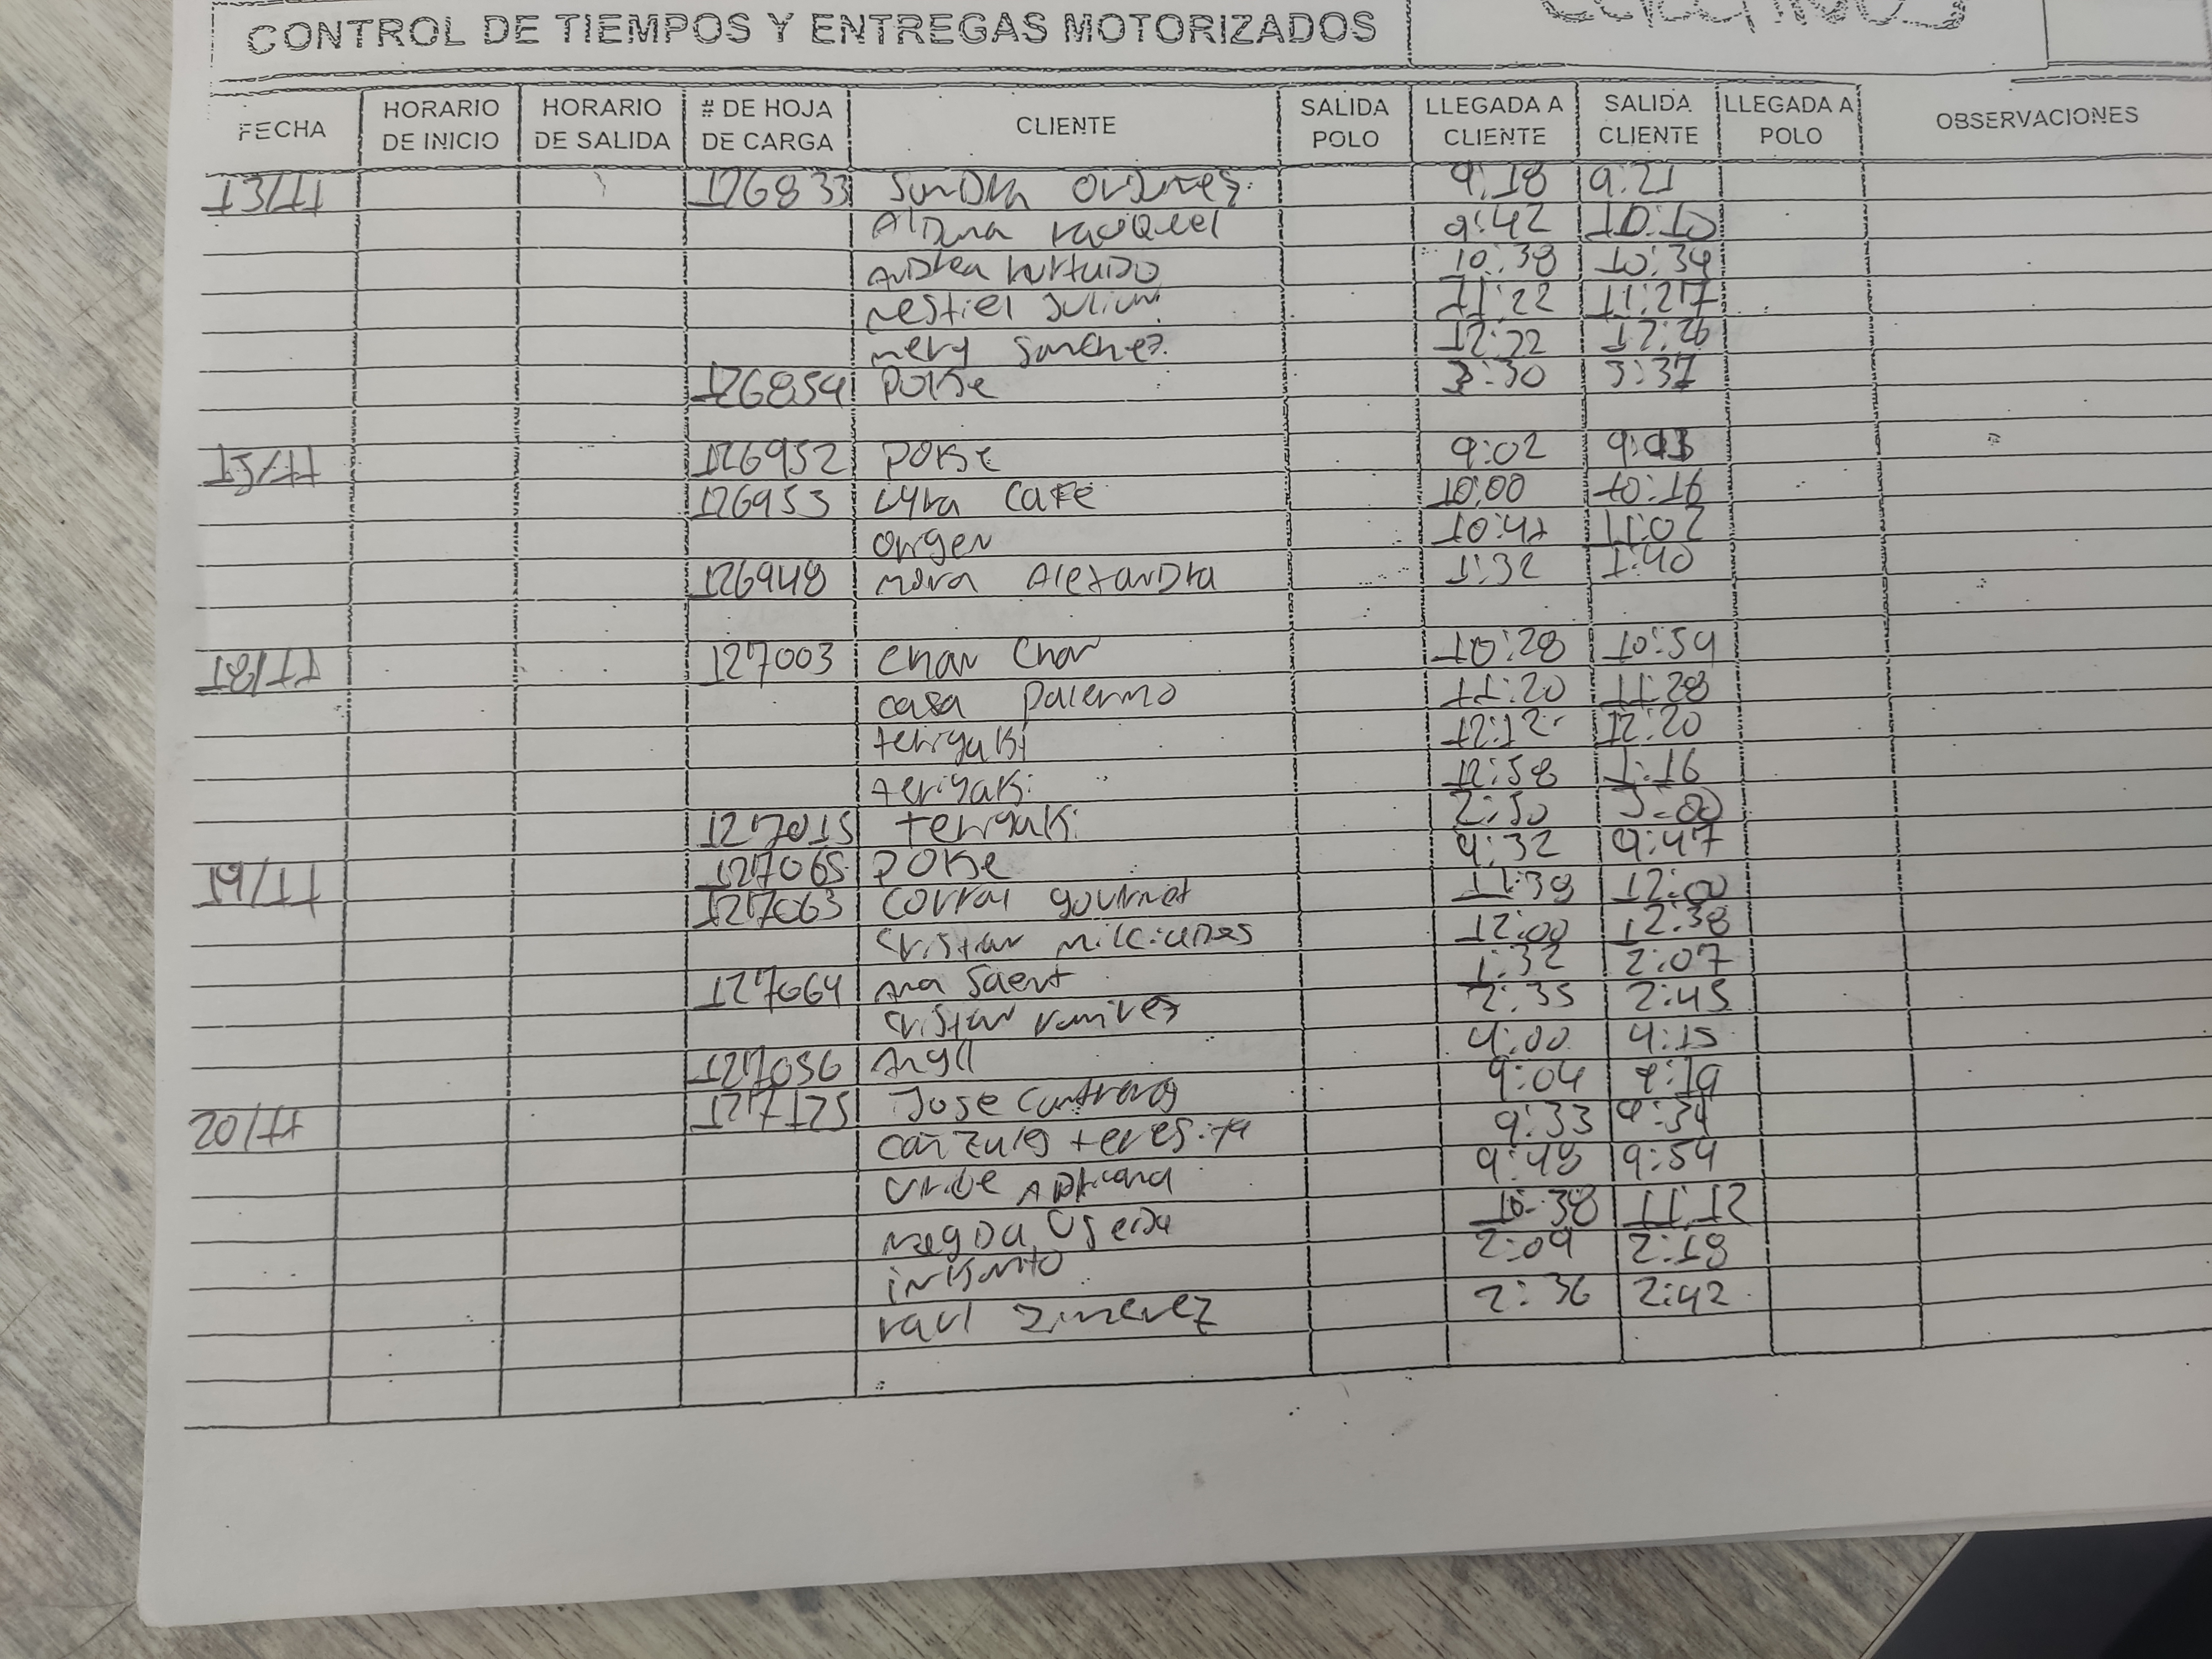 CONTROL DE TIEMPOS Y ENTREGAS MOTORIZADOS
FECHA HORARIO DE INICIO HORARIO DE SALIDA # DE HOJA DE CARGA CLIENTE SALIDA POLO LLEGADA A CLIENTE SALIDA CLIENTE LLEGADA A POLO OBSERVACIONES
13/11 126833 9:18 9:21
9:42 10:10
10:38 10:39
11:22 11:27
mery Sanchez 12:22 12:26
126854 POKE 3:30 3:37
15/11 126952 POKE 9:02
126953 Lyra CAFE 10:00 10:16
origen 10:47 11:02
126948 mora Alexandra 1:32 1:40
18/11 127003 chan chan 10:28 10:59
casa palermo 11:20 11:28
teriyaki 12:12 12:20
teriyaki 12:58 1:16
127015 teriyaki 2:50 3:00
19/11 127065 POKE 9:32 9:47
127063 corral gourmet 11:38 12:00
cristian milciades 12:00 12:38
127064 Ana 1:32 2:07
cristian ramirez 2:35 2:45
127056 4:00 4:15
20/11 127125 Jose Contreras 9:04 9:19
teresita 9:33 9:34
uribe Adriana 9:48 9:54
10:38 11:12
inkanto 2:09 2:18
raul Jimenez 2:36 2:42